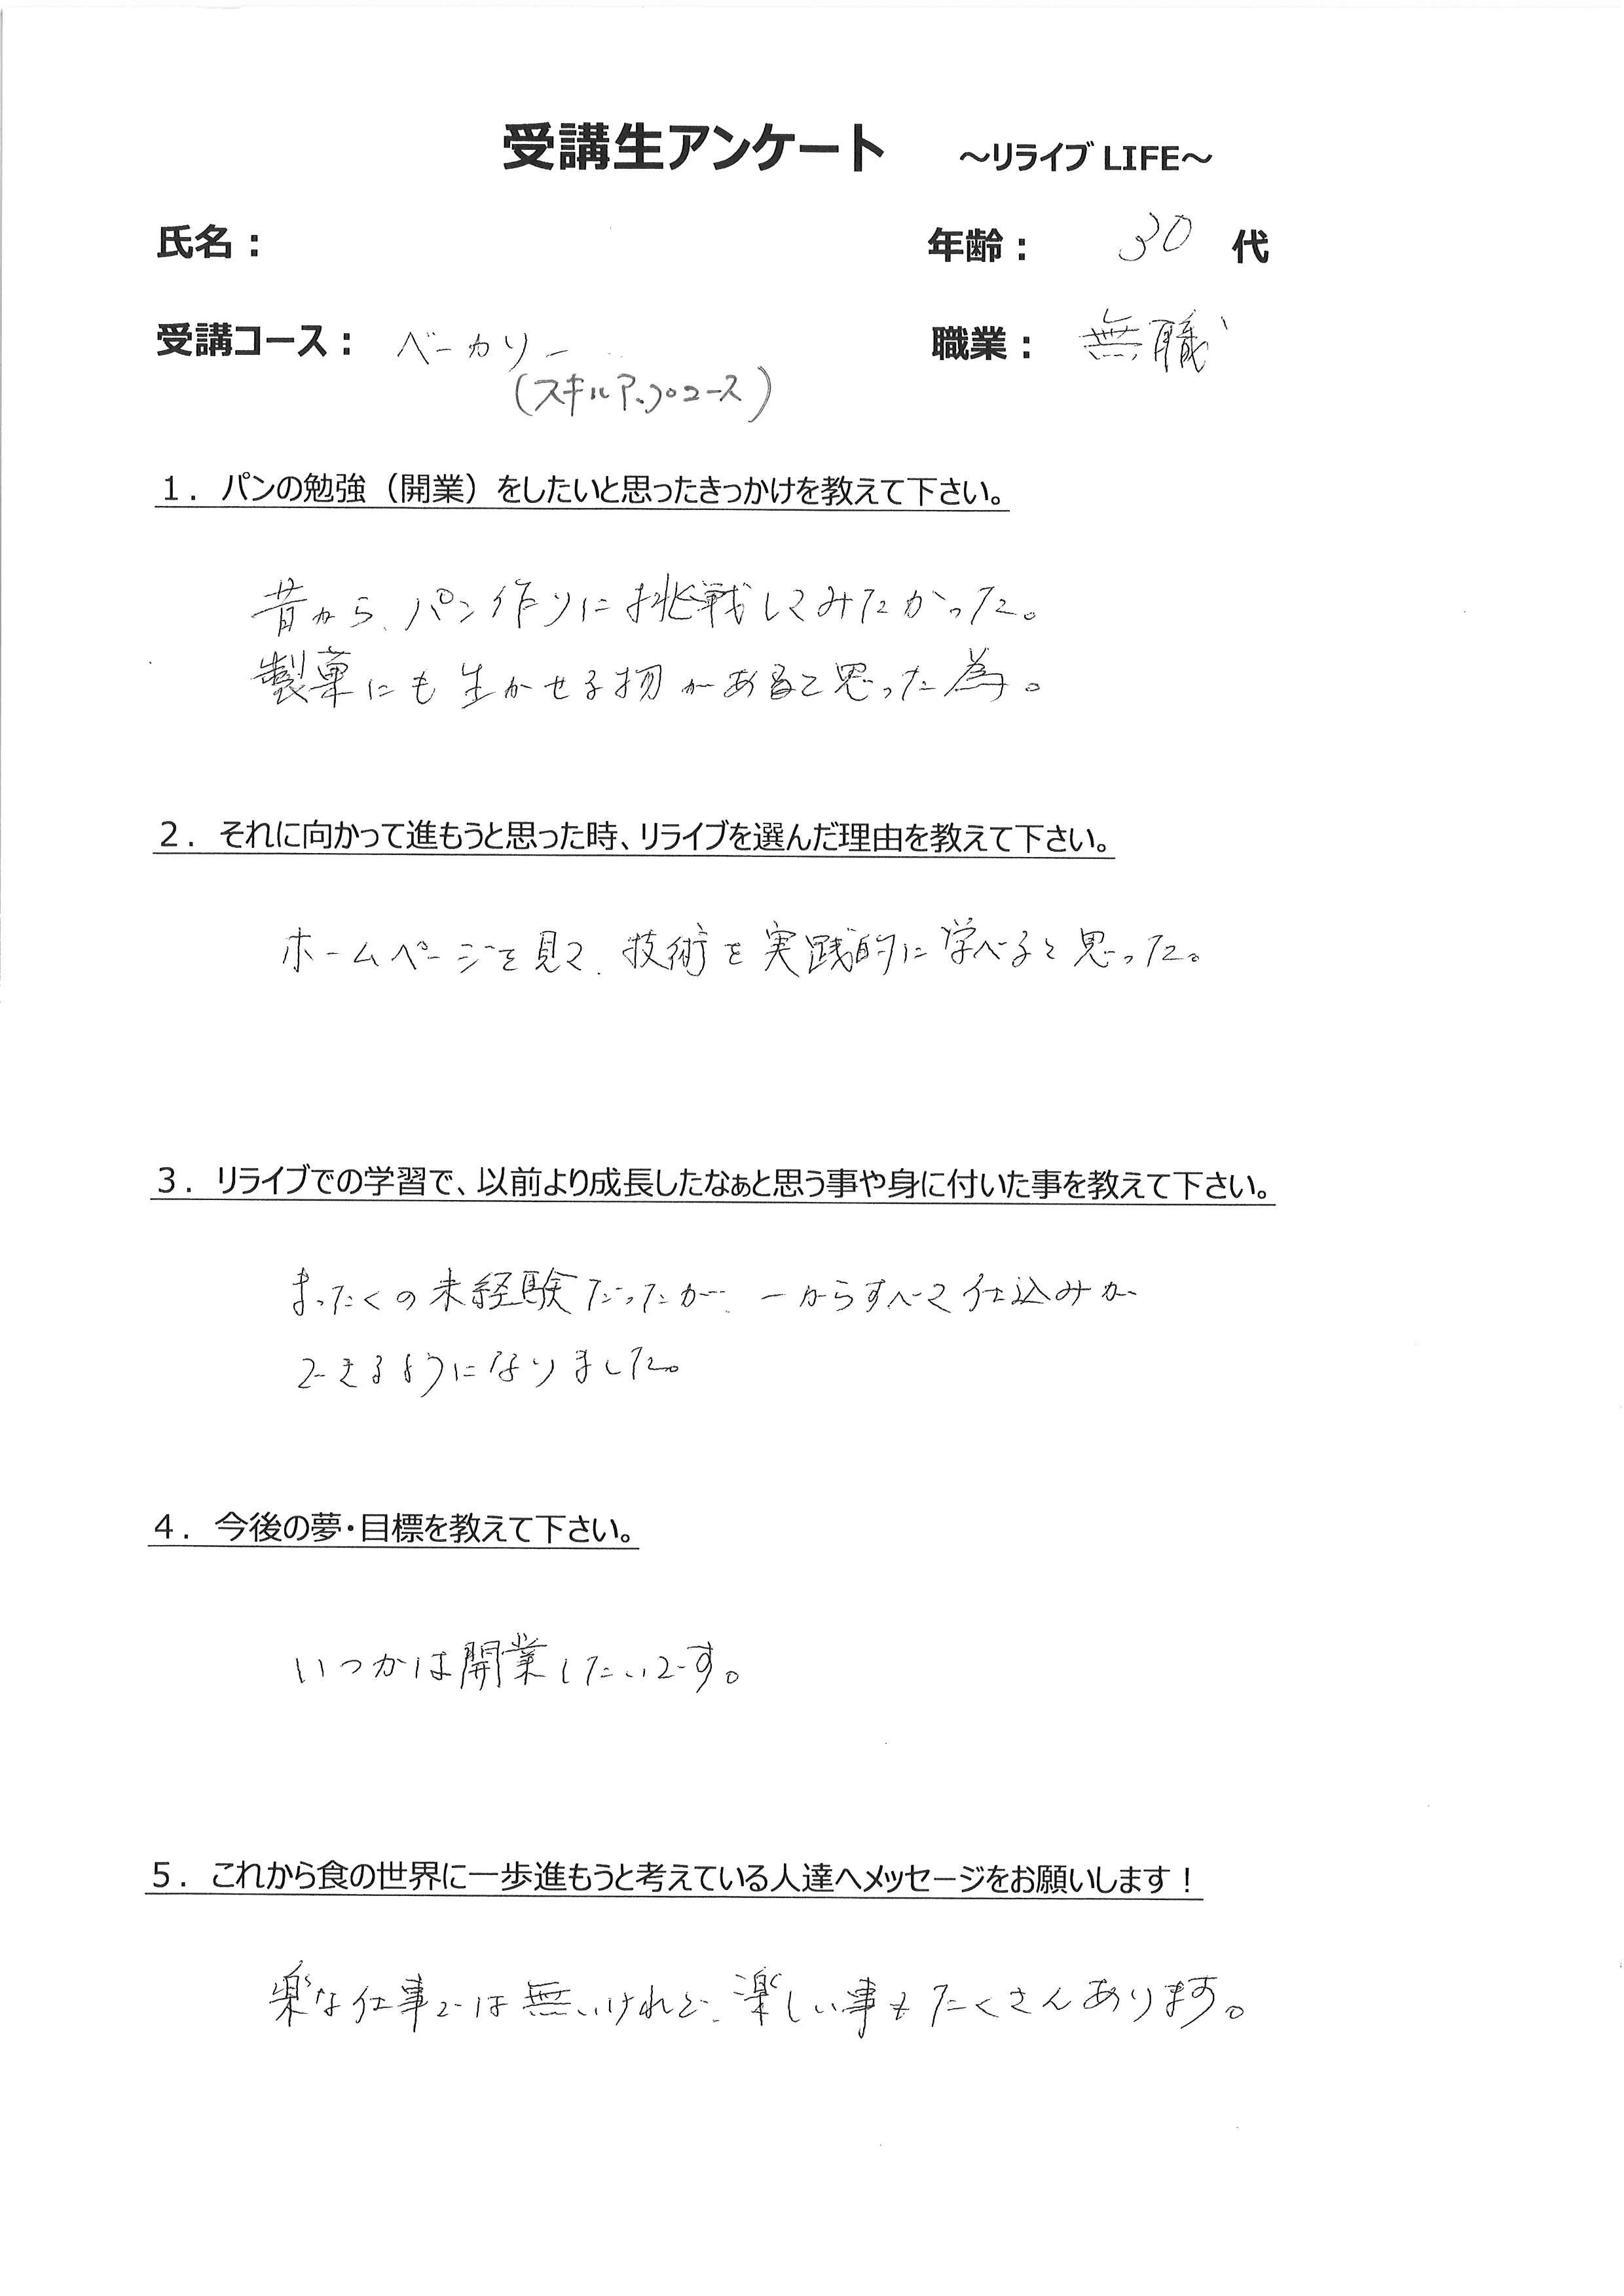 受講生アンケート ～リライブ LIFE～
氏名： 年齢： 30 代
受講コース： ベーカリー 職業： 無職
(スキルアップコース)
１．パンの勉強（開業）をしたいと思ったきっかけを教えて下さい。
昔から、パン作りに挑戦してみたかった。
製菓にも生かせる物があると思った為。
２．それに向かって進もうと思った時、リライブを選んだ理由を教えて下さい。
ホームページを見て、技術を実践的に学べると思った。
３．リライブでの学習で、以前より成長したなぁと思う事や身に付いた事を教えて下さい。
まったくの未経験だったが、一からすべて仕込みが
できるようになりました。
４．今後の夢・目標を教えて下さい。
いつかは開業したいです。
５．これから食の世界に一歩進もうと考えている人達へメッセージをお願いします！
楽な仕事では無いけれど、楽しい事もたくさんあります。